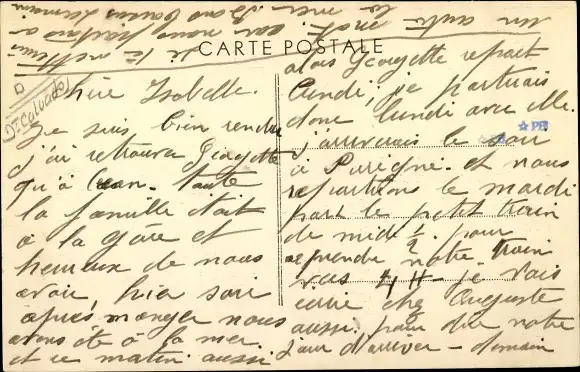 CARTE POSTALE
Chère Isabelle.
Je suis bien rendue
j'ai retrouvé Georgette
qu'à Caen. toute
la famille était
à la gare et
heureux de nous
avoir, hier soir
après manger nous
avons été à la mer.
et ce matin aussi
alors Georgette repart
Lundi, je partirais
donc lundi avec elle.
j'arriverais le soir
à Purigné. et nous
repartirons le mardi
par le petit train
de midi ½ pour
reprendre notre train
vers 4 H - je vais
écrire chez Auguste
aussi pour dire notre
jour d'arriver - demain
je te mettrais
un autre mot car nous partons à
la mer. Bons baisers
(Calvados)